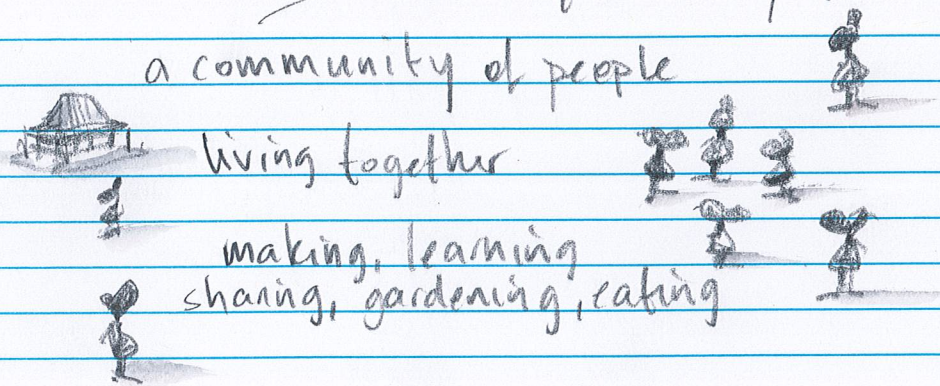 a community of people
living together
making, learning
sharing, gardening, eating